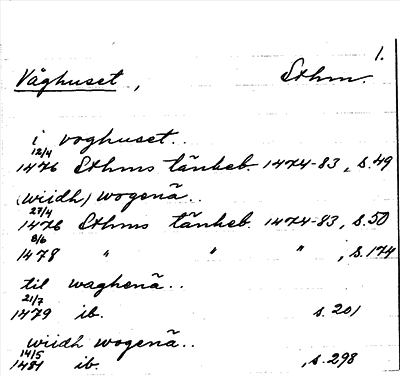 1.
Våghuset, Sthm.
i voghuset..
12/4
1476 Sthms tänkeb. 1474-83, s. 49
(wiidh) wogenä..
27/4
1476 Sthms tänkeb. 1474-83, s. 50
8/6
1478 " " " , s. 174
til waghenä..
21/7
1479 ib. s. 201
wiidh wogenä..
14/5
1481 ib. , s. 298